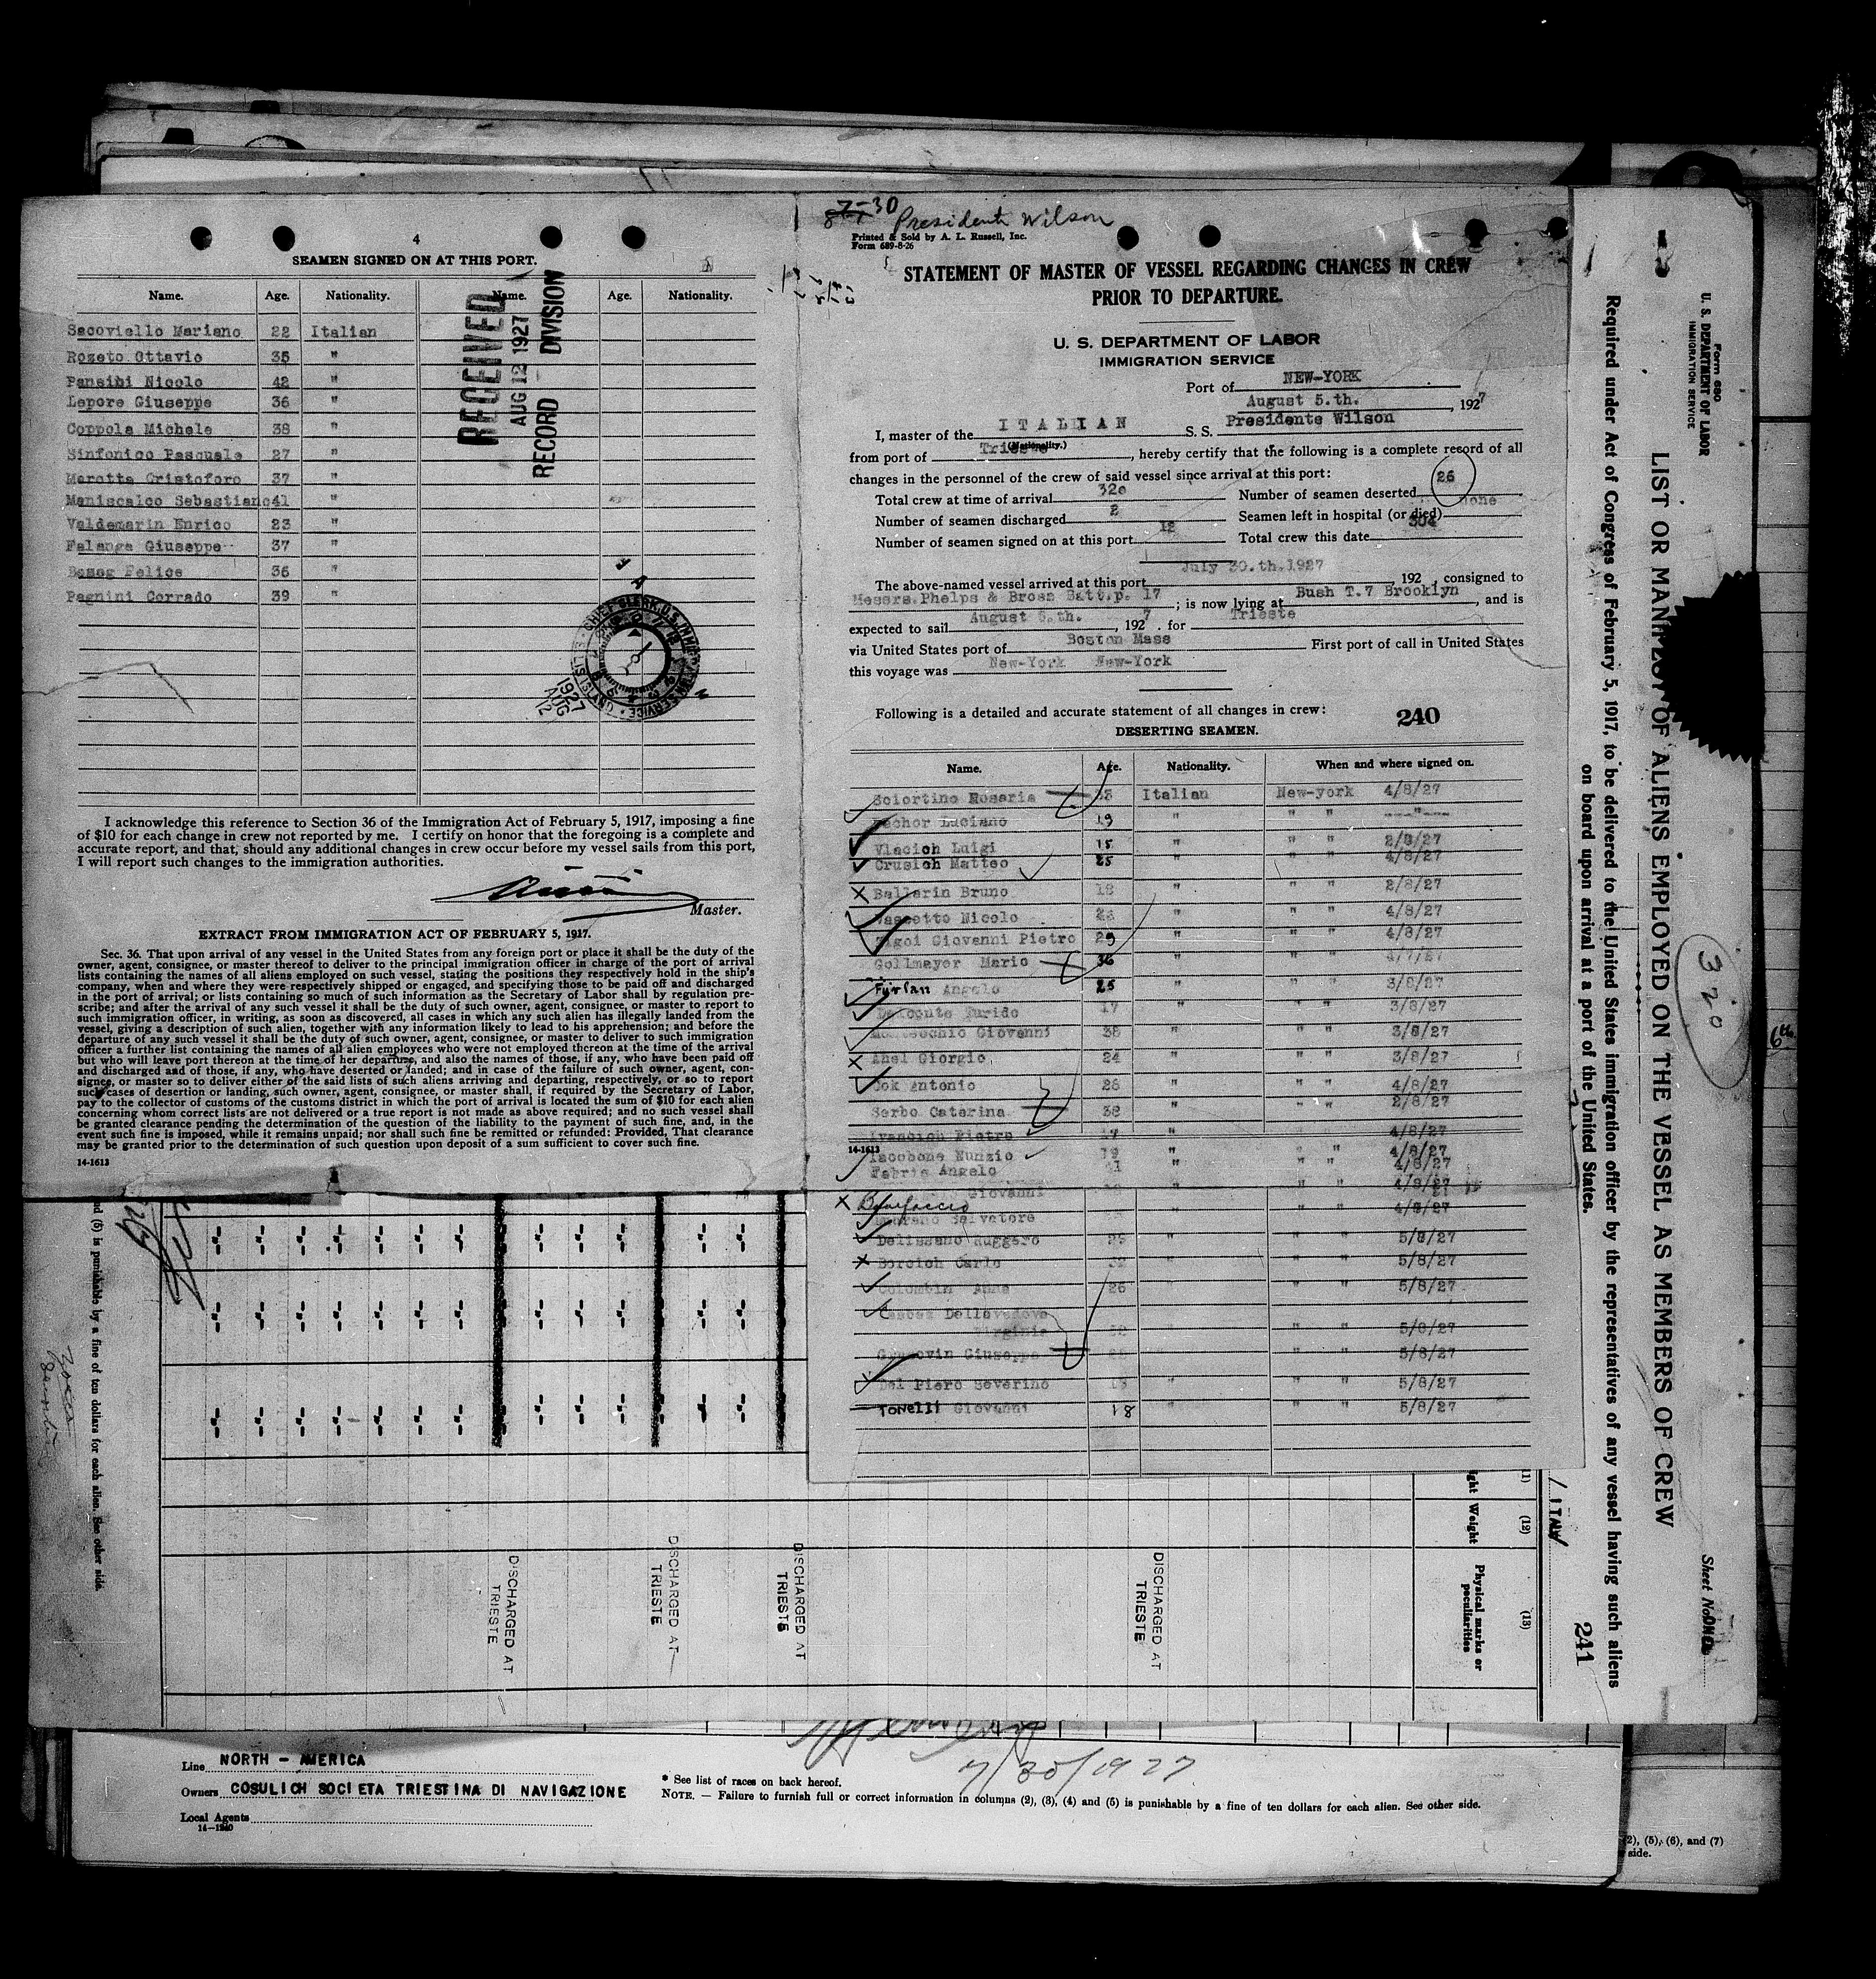 4
SEAMEN SIGNED ON AT THIS PORT.
Name. Age. Nationality. Name. Age. Nationality.
Sacoviello Mariano 22 Italian
Rozeto Ottavio 35 "
Pansini Nicolo 42 "
Lepore Giuseppe 36 "
Coppola Michele 38 "
Sinfonico Pasquale 27 "
Marotta Cristoforo 37 "
Maniscalco Sebastiano 41 "
Valdemarin Enrico 23 "
Falanga Giuseppe 37 "
Felice 36 "
Pagnini Corrado 39 "
RECEIVED
AUG 12 1927
RECORD DIVISION
1927
AUG
12
I acknowledge this reference to Section 36 of the Immigration Act of February 5, 1917, imposing a fine
of $10 for each change in crew not reported by me. I certify on honor that the foregoing is a complete and
accurate report, and that, should any additional changes in crew occur before my vessel sails from this port,
I will report such changes to the immigration authorities.
Master.
EXTRACT FROM IMMIGRATION ACT OF FEBRUARY 5, 1917.
Sec. 36. That upon arrival of any vessel in the United States from any foreign port or place it shall be the duty of the
owner, agent, consignee, or master thereof to deliver to the principal immigration officer in charge of the port of arrival
lists containing the names of all aliens employed on such vessel, stating the positions they respectively hold in the ship's
company, when and where they were respectively shipped or engaged, and specifying those to be paid off and discharged
in the port of arrival; or lists containing so much of such information as the Secretary of Labor shall by regulation pre-
scribe; and after the arrival of any such vessel it shall be the duty of such owner, agent, consignee, or master to report to
such immigration officer, in writing, as soon as discovered, all cases in which any such alien has illegally landed from the
vessel, giving a description of such alien, together with any information likely to lead to his apprehension; and before the
departure of any such vessel it shall be the duty of such owner, agent, consignee, or master to deliver to such immigration
officer a further list containing the names of all alien employees who were not employed thereon at the time of the arrival
but who will leave port thereon at the time of her departure, and also the names of those, if any, who have been paid off
and discharged and of those, if any, who have deserted or landed; and in case of the failure of such owner, agent, con-
signee, or master so to deliver either of the said lists of such aliens arriving and departing, respectively, or so to report
such cases of desertion or landing, such owner, agent, consignee, or master shall, if required by the Secretary of Labor,
pay to the collector of customs of the customs district in which the port of arrival is located the sum of $10 for each alien
concerning whom correct lists are not delivered or a true report is not made as above required; and no such vessel shall
be granted clearance pending the determination of the question of the liability to the payment of such fine, and, in the
event such fine is imposed, while it remains unpaid; nor shall such fine be remitted or refunded: Provided, That clearance
may be granted prior to the determination of such question upon deposit of a sum sufficient to cover such fine.
14-1613
7-30 Presidente Wilson
Printed & Sold by A. L. Russell, Inc.
Form 689-8-26
STATEMENT OF MASTER OF VESSEL REGARDING CHANGES IN CREW
PRIOR TO DEPARTURE.
U. S. DEPARTMENT OF LABOR
IMMIGRATION SERVICE
Port of NEW-YORK
August 5.th. , 1927
I, master of the ITALIAN S. S. Presidente Wilson
(Nationality.)
from port of Trieste , hereby certify that the following is a complete record of all
changes in the personnel of the crew of said vessel since arrival at this port:
Total crew at time of arrival 320 Number of seamen deserted 26
Number of seamen discharged 2 Seamen left in hospital (or died) none
Number of seamen signed on at this port 12 Total crew this date 304
The above-named vessel arrived at this port July 30.th.1927 , 192 , consigned to
Messrs.Phelps & Bross Batt.p. 17 ; is now lying at Bush T.7 Brooklyn , and is
expected to sail August 5.th. , 1927 . for Trieste
via United States port of Boston Mass First port of call in United States
this voyage was New-York New-York
Following is a detailed and accurate statement of all changes in crew: 240
DESERTING SEAMEN.
Name. Age. Nationality. When and where signed on.
Sciortino Rosaria 33 Italian New-york 4/8/27
Luciano 19 " " "
Vlacich Luigi 15 " " " 2/8/27
Crusich Matteo 25 " " 4/8/27
Ballarin Bruno 18 " " " 2/8/27
Vascotto Nicolo " " " 4/8/27
Zigoi Giovanni Pietro 29 " " " 4/8/27
Gollmayer Mario 36 " " " 4/7/27
Furlan Angelo 25 " " " 3/8/27
Delconte Turido 17 " " " 3/8/27
Giovanni 38 " " " 3/8/27
Ahel Giorgio 24 " " " 3/8/27
Cok Antonio 26 " " " 4/8/27
Serbo Caterina 38 " " " 2/8/27
Ivancich Pietro 17 " 4/8/27
14-1613
Iacobone Nunzio 19 " " " 4/8/27
Fabris Angelo 41 " 4/8/27
Giovanni " " " 4/8/27
Bonifaccio
Salvatore " " " 4/8/27
Delissano Ruggero 29 " " " 5/8/27
Borcich Carlo " " " 5/8/27
Colombin Anna 26 " " " 5/8/27
Dellavedova
Virginia " " " 5/8/27
Giuseppe " " " 5/8/27
Del Piero Severino " " " 5/8/27
Tonelli Giovanni 18 " " " 5/8/27
Form 680
U. S. DEPARTMENT OF LABOR
IMMIGRATION SERVICE
LIST OR MANIFEST OF ALIENS EMPLOYED ON THE VESSEL AS MEMBERS OF CREW
Sheet No. ONE
Required under Act of Congress of February 5, 1917, to be delivered to the United States immigration officer by the representatives of any vessel having such aliens
on board upon arrival at a port of the United States.
320
241
6th
ITALY
(11) (12) (13)
Weight
Physical marks or
peculiarities
DISCHARGED AT
TRIESTE
DISCHARGED AT
TRIESTE
DISCHARGED AT
TRIESTE
DISCHARGED AT
TRIESTE
nd (5) is punishable by a fine of ten dollars for each alien. See other side.
7/30/1927
Line NORTH - AMERICA
Owners COSULICH SOCIETA TRIESTINA DI NAVIGAZIONE
Local Agents
14-1240
* See list of races on back hereof.
NOTE. — Failure to furnish full or correct information in columns (2), (3), (4) and (5) is punishable by a fine of ten dollars for each alien. See other side.
2), (5), (6), and (7)
side.